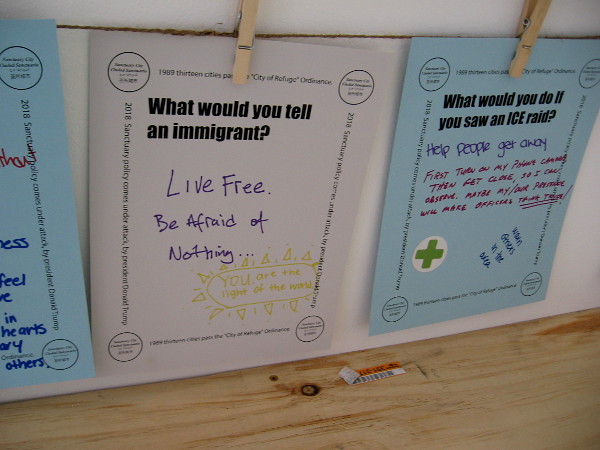 ness
feel
in
hearts
others.
Ordinance.
2018 Sanctuary policy comes under attack, by president Donald Trump
Sanctuary City
Ciudad Santuario
1989 thirteen cities pass the "City of Refuge" Ordinance.
What would you tell
an immigrant?
Live Free.
Be Afraid of
Nothing...
You are the
light of the world
2018 Sanctuary policy comes under attack, by president Donald Trump
2018 Sanctuary policy comes under attack, by president Donald Trump
1989 thirteen cities pass the "City of Refuge" Ordinance.
Sanctuary City
Ciudad Santuario
1989 thirteen cities pass the "City of Refuge" Ordinance.
What would you do if
you saw an ICE raid?
Help people get away
First turn on my phone camera
then get close, so I can
observe. Maybe my/our presence
will make officers think twice
2018 Sanctuary policy comes under attack, by president Donald Trump
1989 thirteen cities pass the "City of Refuge" Ordinance.